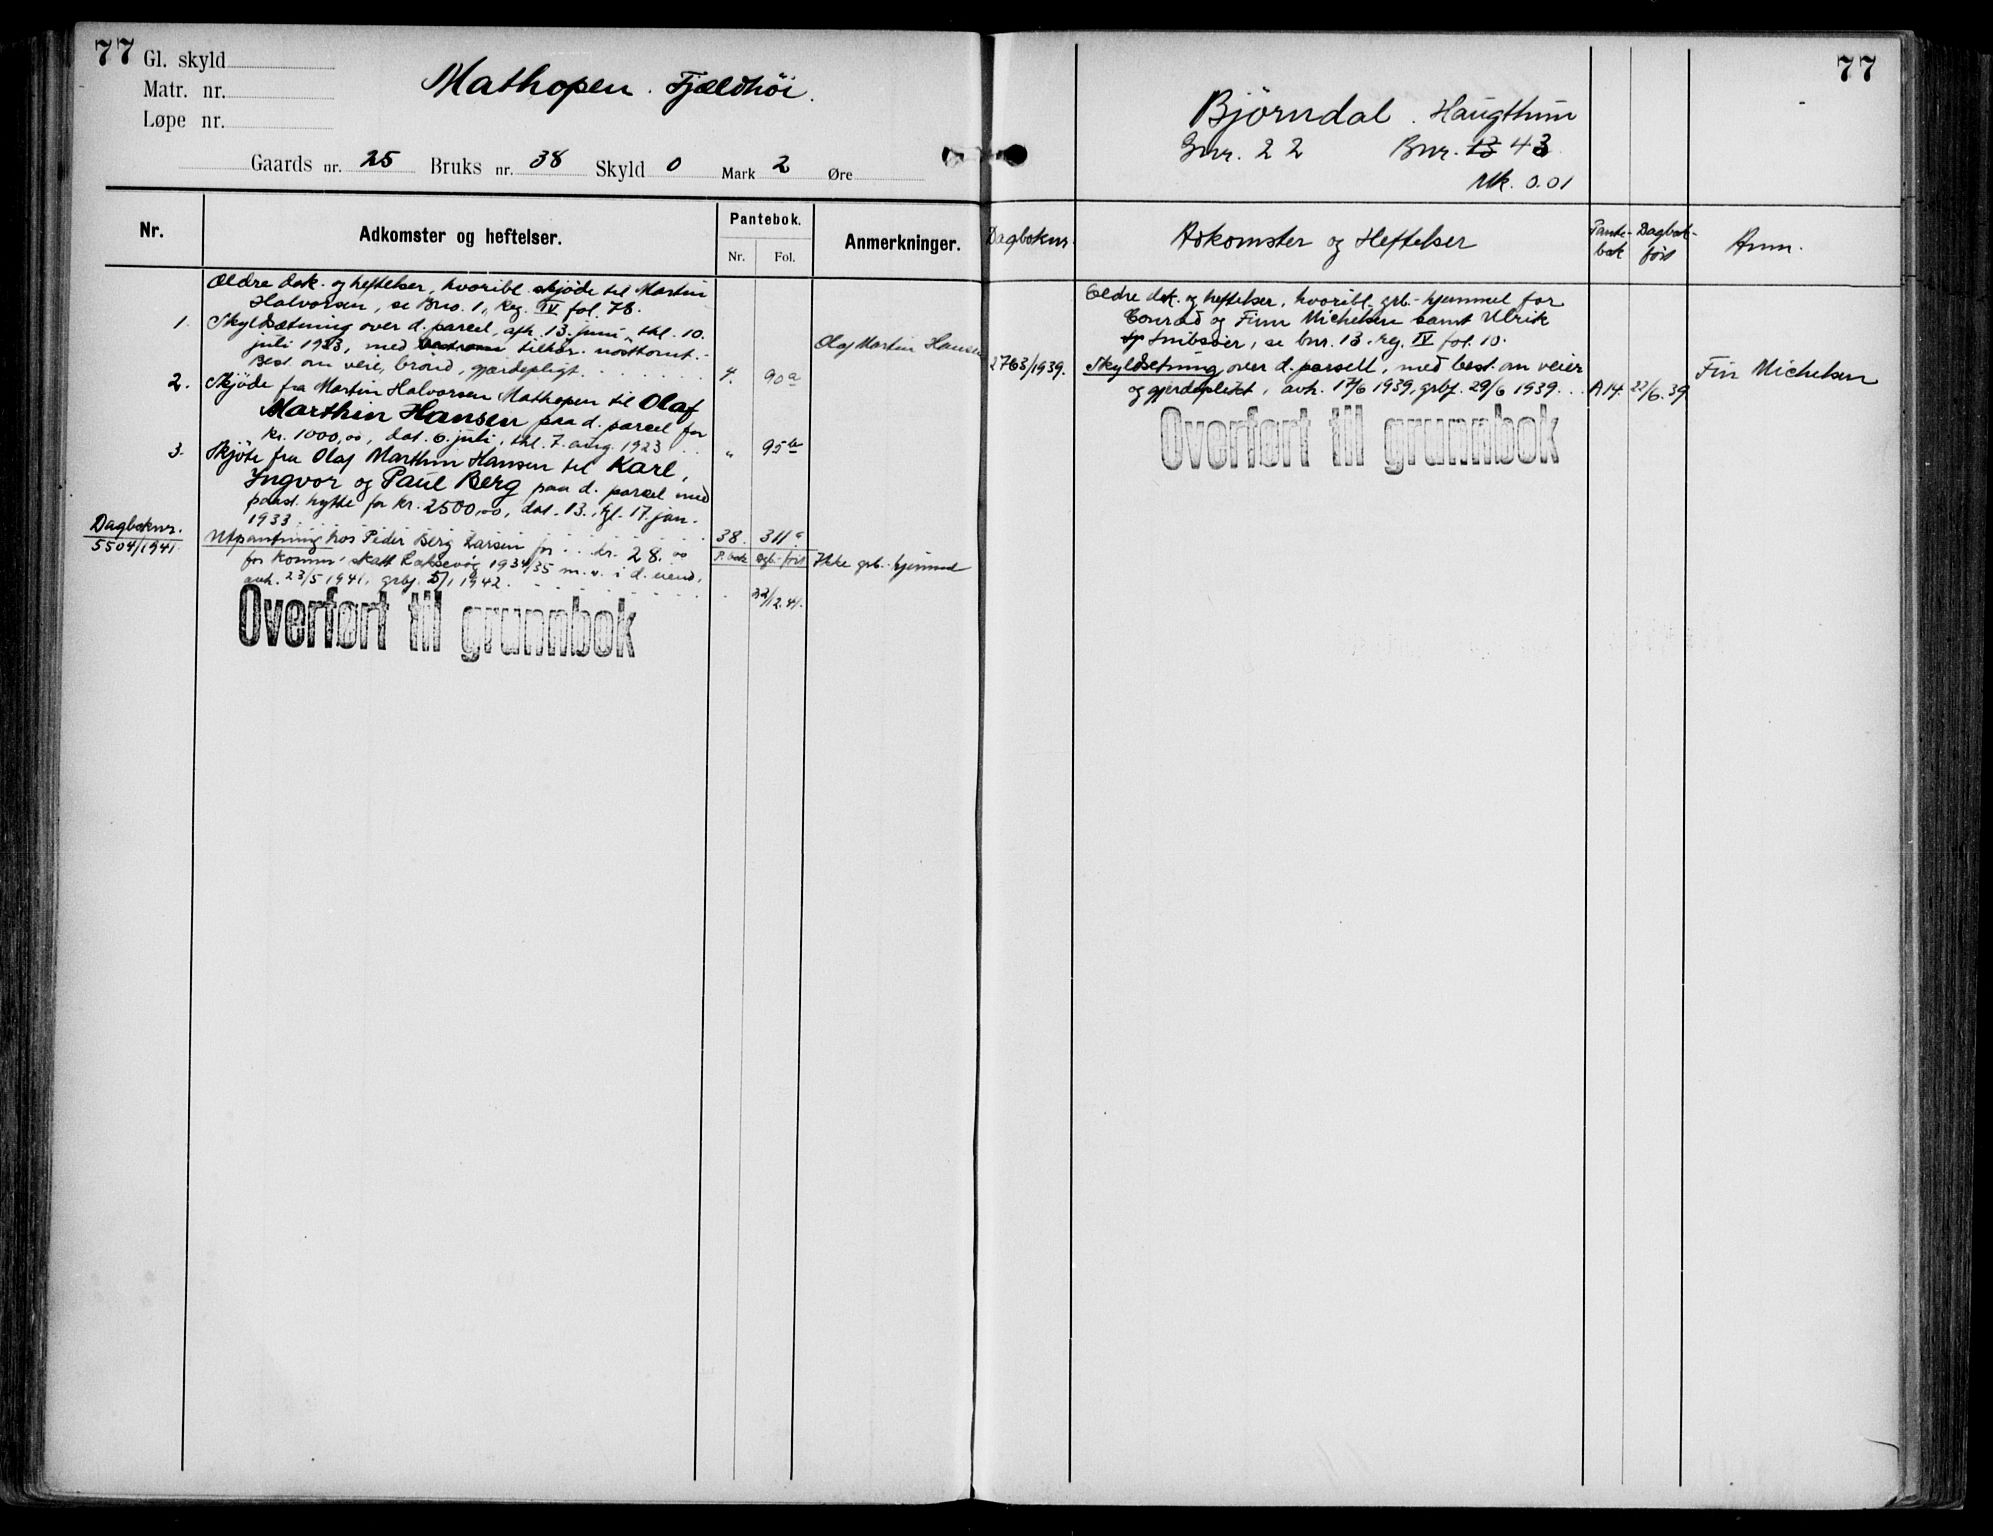 77
Gl. skyld
Matr. nr.
Løpe nr.
Mathopen. Fjældhöi.
Gaards nr. 25 Bruks nr. 38 Skyld 0 Mark 2 Øre
Nr.
Adkomster og heftelser.
Pantebok.
Nr. Fol.
Anmerkninger.
Ældre dok. og heftelser, hvoribl. skjöde til Martin
Halvorsen, se Bno. 1, Reg. IV fol. 76.
1. Skyldsætning over d. parcel, afh. 13. juni, thl. 10.
juli 1923, med tilhör. nösttomt.
Best. om veie, brönd, gjærdepligt. 4. 90a
Olaf Martin Hansen
2. Skjöde fra Martin Halvorsen Mathopen til Olaf
Marthin Hansen paa d. parcel for
kr. 1000,00, dat. 6. juli, thl. 7. aug. 1923 " 95b
3. Skjöte fra Olaf Marthin Hansen til Karl,
Ingvor og Paul Berg paa d. parcel med
paast. hytte for kr. 2500,00, dat. 13., tgl. 17. jan.
1933 38. 311a
Dagboknr.
5504/1941
Utpantning hos Peder Berg Larsen for kr. 28.00
P. bok Dgb. ført
for komm. skatt Laksevåg 1934/35 m. v. i d. eiend.
Ikke grb. hjemmel
avh. 23/5 1941, grbf. 5/1 1942.
22/12.41.
Overført til grunnbok
77
Björndal. Haugthun
Gnr. 22 Bnr. 13 43
Mk. 0.01
Dagboknr.
Adkomster og Heftelser
Pante-
bok
Dagbok-
ført
Anm.
Eldre dok. og heftelser, hvoribl. grb.-hjemmel for
Conrad og Finn Michelsen samt Ulrik
Snibsøer, se bnr. 13. reg. IV fol. 10.
2763/1939. Skyldsetning over d. parsell, med best. om veier
og gjerdeplikt, avh. 17/6 1939, grbf. 29/6 1939. A14. 22/6.39
Fin Michelsen
Overført til grunnbok